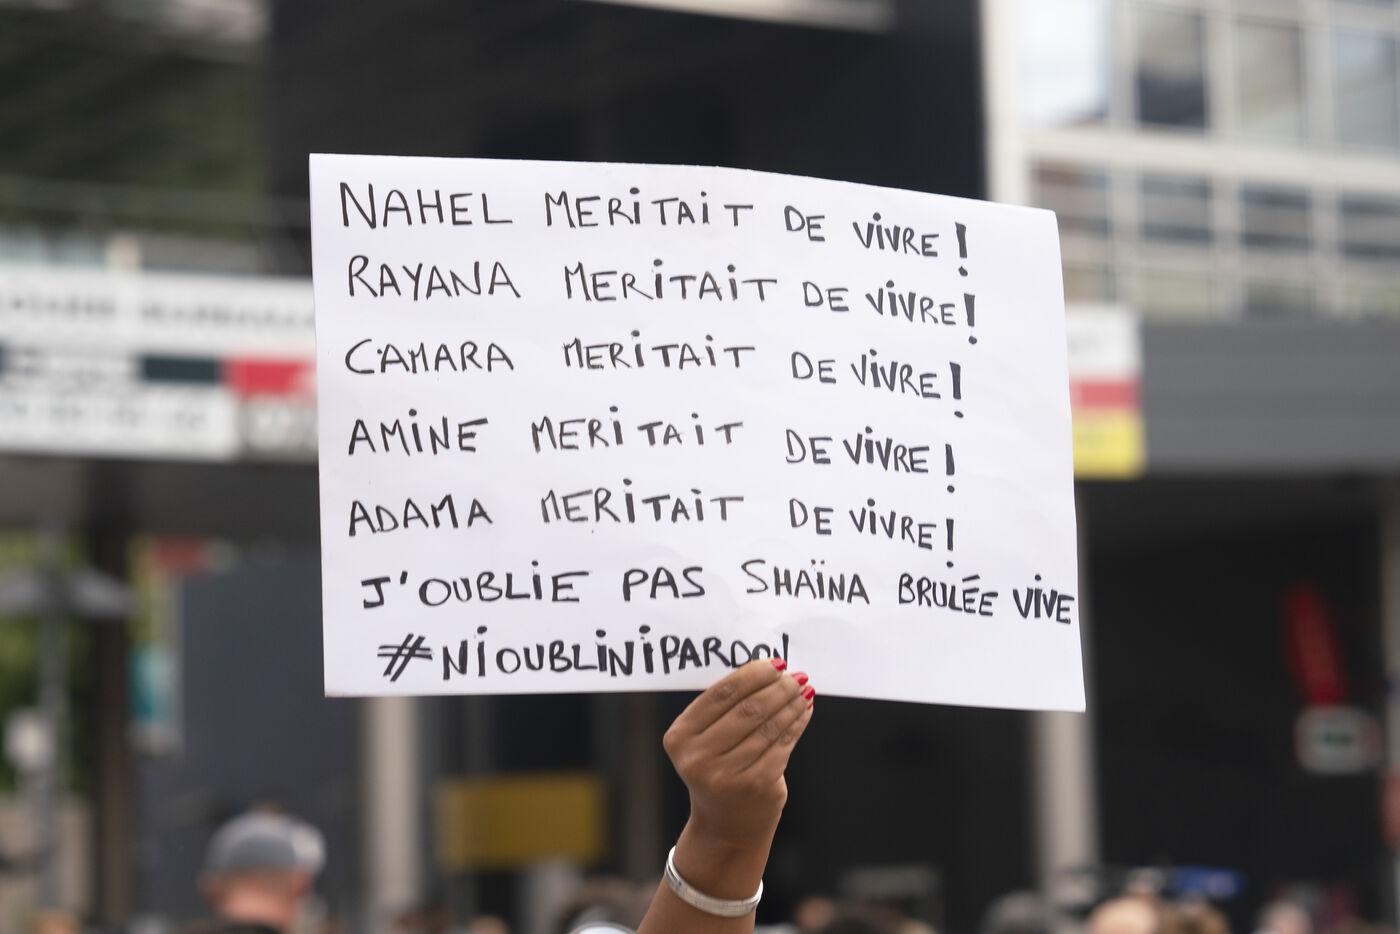 NAHEL MERITAIT DE VIVRE !
RAYANA MERITAIT DE VIVRE !
CAMARA MERITAIT DE VIVRE !
AMINE MERITAIT DE VIVRE !
ADAMA MERITAIT DE VIVRE !
J'OUBLIE PAS SHAÏNA BRULÉE VIVE
#NIOUBLINIPARDON